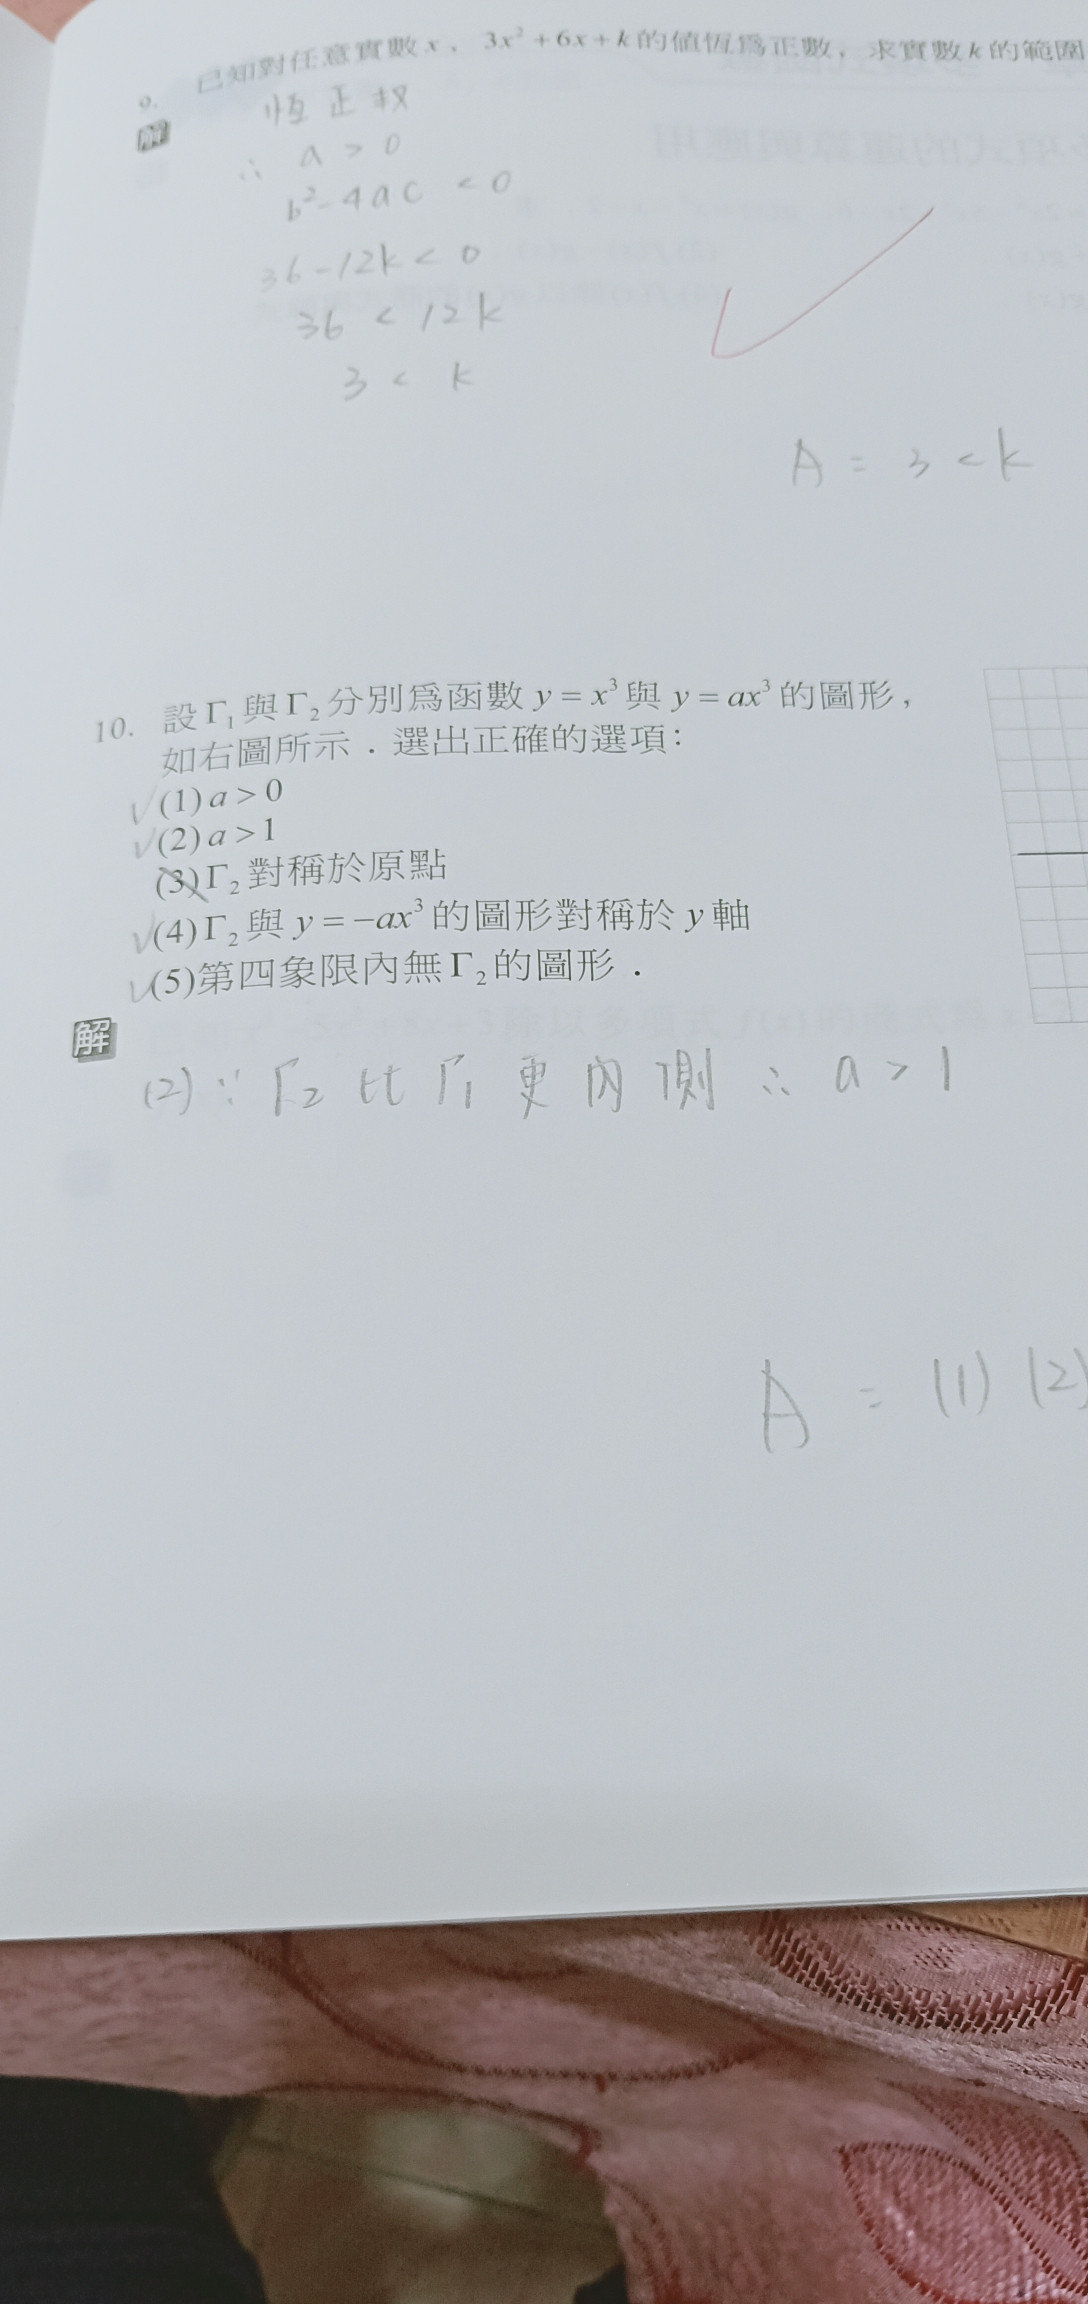 9. 已知對任意實數 x，3x² + 6x + k 的值恆為正數，求實數 k 的範圍
解
恆正
∴ a > 0
b² - 4ac < 0
36 - 12k < 0
36 < 12k
3 < k
A = 3 < k
10. 設 Γ₁ 與 Γ₂ 分別為函數 y = x³ 與 y = ax³ 的圖形，
如右圖所示．選出正確的選項：
✓(1) a > 0
✓(2) a > 1
(3) Γ₂ 對稱於原點
✓(4) Γ₂ 與 y = -ax³ 的圖形對稱於 y 軸
✓(5) 第四象限內無 Γ₂ 的圖形．
解
(2) ∵ Γ₂ 比 Γ₁ 更內側 ∴ a > 1
A = (1) (2)